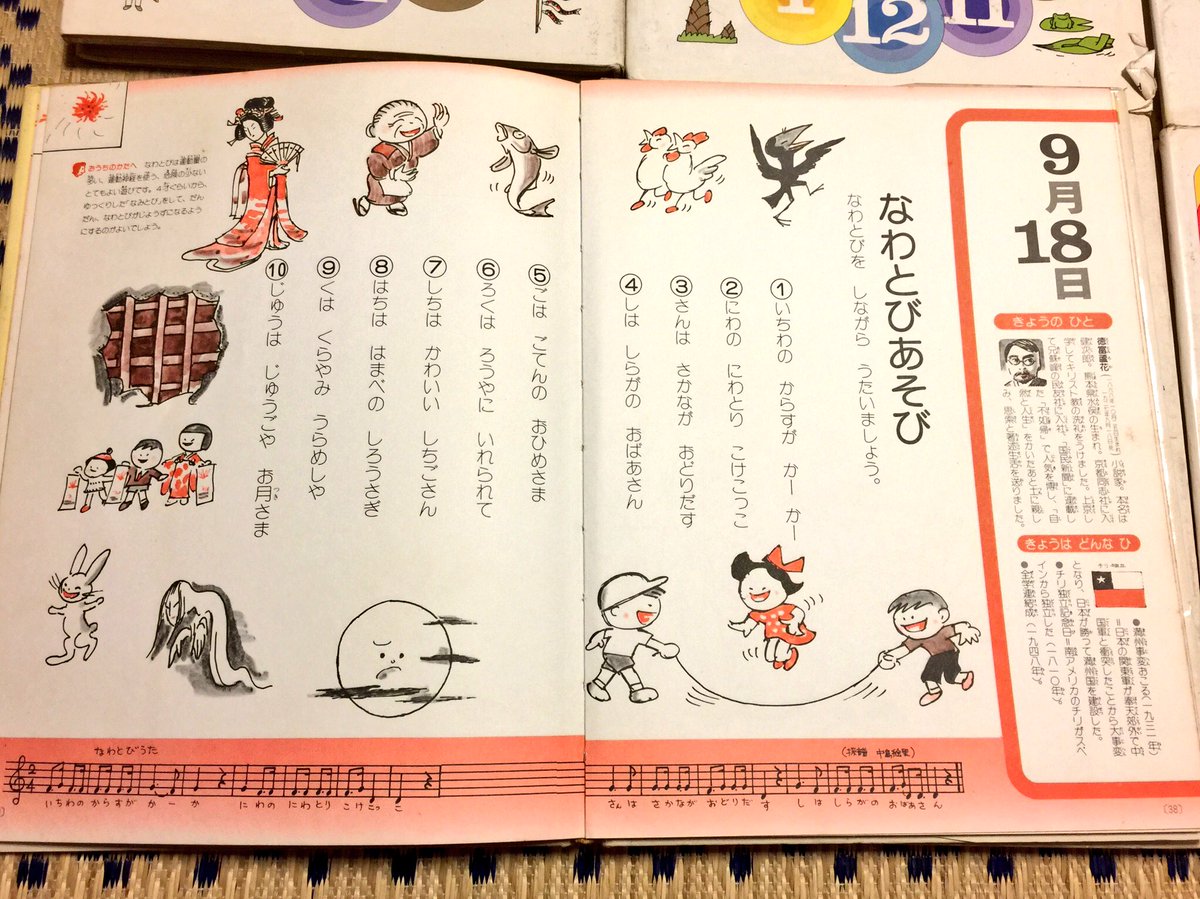 4
12
11
9月18日
きょうの ひと
徳富蘆花
小説家。本名は
健次郎。熊本県水俣の生まれ。京都同志社に入
学してキリスト教の洗礼をうけました。上京し
て兄蘇峰の民友社に入社、「国民新聞」に連載し
た「不如帰」で人気を博し、「自
然と人生」をかいたあと土に親し
み、思索と著述生活を送りました。
きょうは どんな ひ
●満州事変おこる(一九三一年)
=日本の関東軍が奉天郊外で中
国軍と衝突したことから大事変
となり、日本が勝って満州国を建設した。
●チリ独立記念日=南アメリカのチリがスペ
インから独立した(一八一〇年)。
●全学連結成(一九四八年)。
なわとびあそび
なわとびを しながら うたいましょう。
①いちわの からすが かー かー
②にわの にわとり こけこっこ
③さんは さかなが おどりだす
④しは しらがの おばあさん
⑤ごは ごてんの おひめさま
⑥ろくは ろうやに いれられて
⑦しちは かわいい しちごさん
⑧はちは はまべの しろうさぎ
⑨くは くらやみ うらめしや
⑩じゅうは じゅうごや お月さま
つき
おうちのかたへ なわとびは運動量の
多い、運動神経を使う、危険の少ない
とてもよい遊びです。4才ぐらいから、
ゆっくりした"なみとび"をして、だん
だん、なわとびがじょうずになるよう
にするのがよいでしょう。
なわとびうた
いちわのからすが かーか にわの にわとり こけこっ こ
(採譜 中島絵里)
さんは さかなが おどりだ す しは しらがの おばあさん
(38)